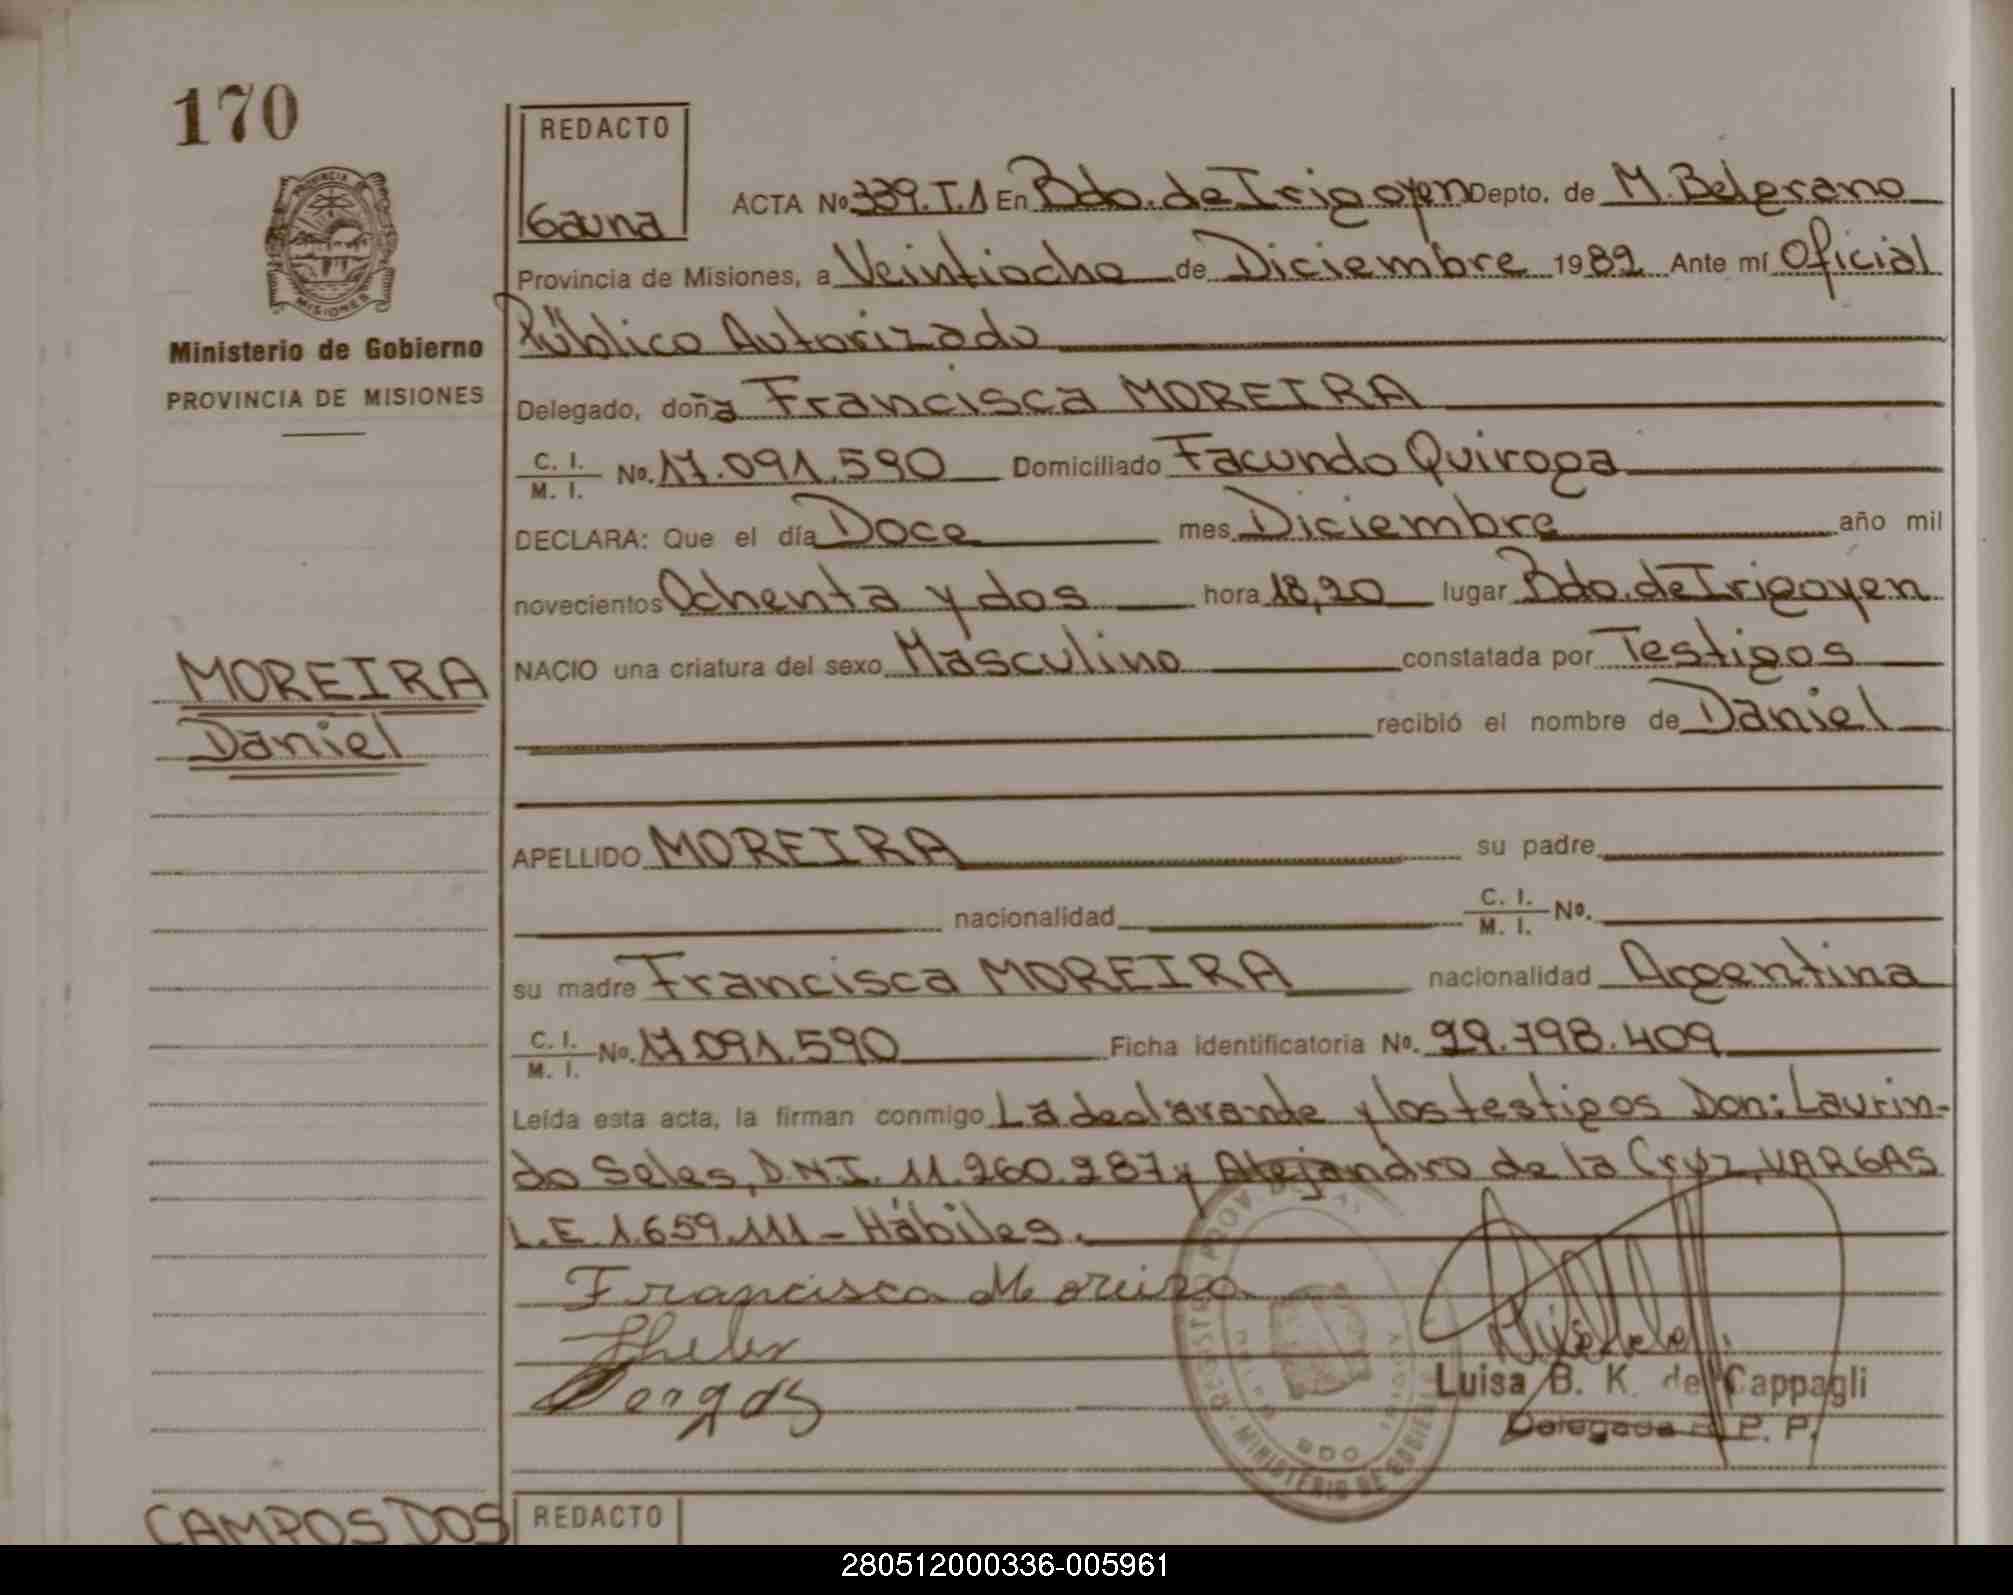 170
REDACTO
Gauna
ACTA Nº 339.T.1 En Bdo. de Irigoyen Depto. de M. Belgrano
Provincia de Misiones, a Veintiocho de Diciembre 1982 Ante mí Oficial
Público Autorizado
Ministerio de Gobierno
PROVINCIA DE MISIONES
Delegado, doña Francisca MOREIRA
C. I.
M. I. No. 17.091.590 Domiciliado Facundo Quiroga
DECLARA: Que el día Doce mes Diciembre año mil
novecientos Ochenta y dos hora 18,20 lugar Bdo. de Irigoyen
NACIO una criatura del sexo Masculino constatada por Testigos
MOREIRA
Daniel
recibió el nombre de Daniel
APELLIDO MOREIRA su padre
nacionalidad C. I. M. I. Nº.
su madre Francisca MOREIRA nacionalidad Argentina
C. I.
M. I. Nº. 17.091.590 Ficha identificatoria Nº. 29.798.409
Leída esta acta, la firman conmigo La declarande y los testigos Don: Laurin-
do Seles, D.N.I. 11.260.287 y Alejandro de la Cruz VARGAS
L.E 1.659.111 – Hábiles.
Francisca Moreira
Vergas
Luisa B. K. de Cappagli
Delegada R. P. P.
MINISTERIO DE GOBIERNO
CAMPOS DOS
REDACTO
280512000336-005961